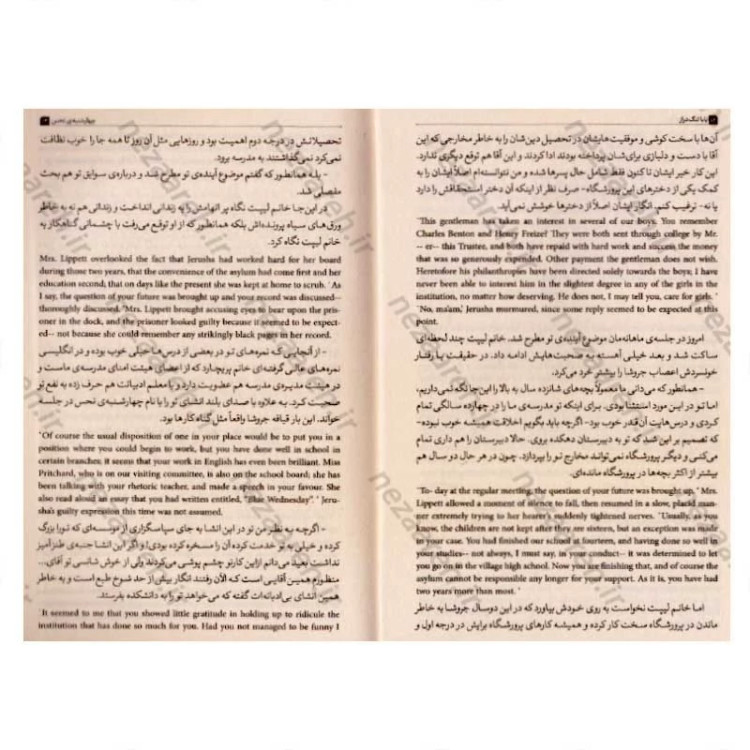 بابا لنگ‌دراز
آن‌ها با سخت کوشی و موفقیت‌هایشان در تحصیل دین‌شان را به خاطر مخارجی که این
آقا با دست و دلبازی برای‌شان پرداخته بودند ادا کردند و این آقا هم توقع دیگری ندارد.
این کار خیر ایشان تا کنون فقط شامل حال پسرها شده و من نتوانسته‌ام اصلاً ایشان را به
کمک یکی از دخترهای این پرورشگاه- صرف نظر از اینکه آن دختر استحقاقش را دارد
یا نه- ترغیب کنم. انگار ایشان اصلاً از دخترها خوشش نمی‌آید.
'This gentleman has taken an interest in several of our boys. You remember
Charles Benton and Henry Freize? They were both sent through college by Mr.
-- er-- this Trustee, and both have repaid with hard work and success the money
that was so generously expended. Other payment the gentleman does not wish.
Heretofore his philanthropies have been directed solely towards the boys; I have
never been able to interest him in the slightest degree in any of the girls in the
institution, no matter how deserving. He does not, I may tell you, care for girls. '
'No, ma'am,' Jerusha murmured, since some reply seemed to be expected at this
point.
امروز در جلسه‌ی ماهانه‌مان موضوع آینده‌ی تو مطرح شد. خانم لیپت چند لحظه‌ای
ساکت شد و بعد خیلی آهسته به صحبت‌هایش ادامه داد. در حقیقت با رفتار
خونسردش اعصاب جروشا را بیشتر خرد می‌کرد.
- همانطور که می‌دانی ما معمولاً بچه‌های شانزده سال به بالا را این جا نگه نمی‌داریم،
اما تو در این مورد استثنا بودی. برای اینکه تو مدرسه‌ی ما را در چهارده سالگی تمام
کردی و درس‌هایت آن‌قدر خوب بود- اگرچه باید بگویم اخلاقت همیشه خوب نبوده-
که تصمیم بر این شد که تو به دبیرستان دهکده بروی. حالا دبیرستان را هم داری تمام
می‌کنی و دیگر پرورشگاه نمی‌تواند مخارج تو را بپردازد. چون در هر حال دو سال هم
بیشتر از اکثر بچه‌ها در پرورشگاه مانده‌ای.
'To- day at the regular meeting, the question of your future was brought up. ' Mrs.
Lippett allowed a moment of silence to fall, then resumed in a slow, placid man-
ner extremely trying to her hearer's suddenly tightened nerves. 'Usually, as you
know, the children are not kept after they are sixteen, but an exception was made
in your case. You had finished our school at fourteen, and having done so well in
your studies-- not always, I must say, in your conduct-- it was determined to let
you go on in the village high school. Now you are finishing that, and of course the
asylum cannot be responsible any longer for your support. As it is, you have had
two years more than most. '
اما خانم لیپت نخواست به روی خودش بیاورد که در این دو سال جروشا به خاطر
ماندن در پرورشگاه سخت کار کرده و همیشه کارهای پرورشگاه برایش در درجه اول و
چهارشنبه‌ی نحس
تحصیلاتش در درجه دوم اهمیت بود و روزهایی مثل آن روز تا همه جا را خوب نظافت
نمی‌کرد نمی‌گذاشتند به مدرسه برود.
- بله همانطور که گفتم موضوع آینده‌ی تو مطرح شد و درباره‌ی سوابق تو هم بحث
مفصلی شد.
در این‌جا خانم لیپت نگاه پر اتهامش را به زندانی انداخت و زندانی هم نه به خاطر
ورق‌های سیاه پرونده‌اش بلکه همانطور که از او توقع می‌رفت با چشمانی گناهکار به
خانم لیپت نگاه کرد.
Mrs. Lippett overlooked the fact that Jerusha had worked hard for her board
during those two years, that the convenience of the asylum had come first and her
education second; that on days like the present she was kept at home to scrub. ' As
I say, the question of your future was brought up and your record was discussed--
thoroughly discussed. 'Mrs. Lippett brought accusing eyes to bear upon the pris-
oner in the dock, and the prisoner looked guilty because it seemed to be expect-
ed-- not because she could remember any strikingly black pages in her record.
- از آنجایی که نمره‌های تو در بعضی از درس‌ها خیلی خوب بوده و در انگلیسی
نمره‌های عالی گرفته‌ای خانم پریچارد که از اعضای هیئت امنای مدرسه‌ی ماست و
در هیئت مدیره‌ی مدرسه هم عضویت دارد و با معلم ادبیاتت هم حرف زده به نفع تو
صحبت کرد. به علاوه با صدای بلند انشای تو را با نام چهارشنبه‌ی نحس در جلسه
خواند. این بار قیافه جروشا واقعاً مثل گناه کارها بود.
'Of course the usual disposition of one in your place would be to put you in a
position where you could begin to work, but you have done well in school in
certain branches; it seems that your work in English has even been brilliant. Miss
Pritchard, who is on our visiting committee, is also on the school board; she has
been talking with your rhetoric teacher, and made a speech in your favour. She
also read aloud an essay that you had written entitled, "Blue Wednesday". ' Jeru-
sha's guilty expression this time was not assumed.
- اگرچه به نظر من تو در این انشا به جای سپاسگزاری از موسسه‌ای که تو را بزرگ
کرده و خیلی به تو خدمت کرده آن را مسخره کرده بودی! و اگر این انشا جنبه‌ی طنزآمیز
نداشت بعید می‌دانم از این کار تو چشم پوشی می‌کردند ولی از خوش شانسی تو آقای...
منظورم همین آقایی است که الآن رفتند انگار بیش از حد شوخ طبع است و به خاطر
همین انشای بی‌ادبانه‌ات گفته که می‌خواهد تو را به دانشکده بفرستد.
'It seemed to me that you showed little gratitude in holding up to ridicule the
institution that has done so much for you. Had you not managed to be funny I